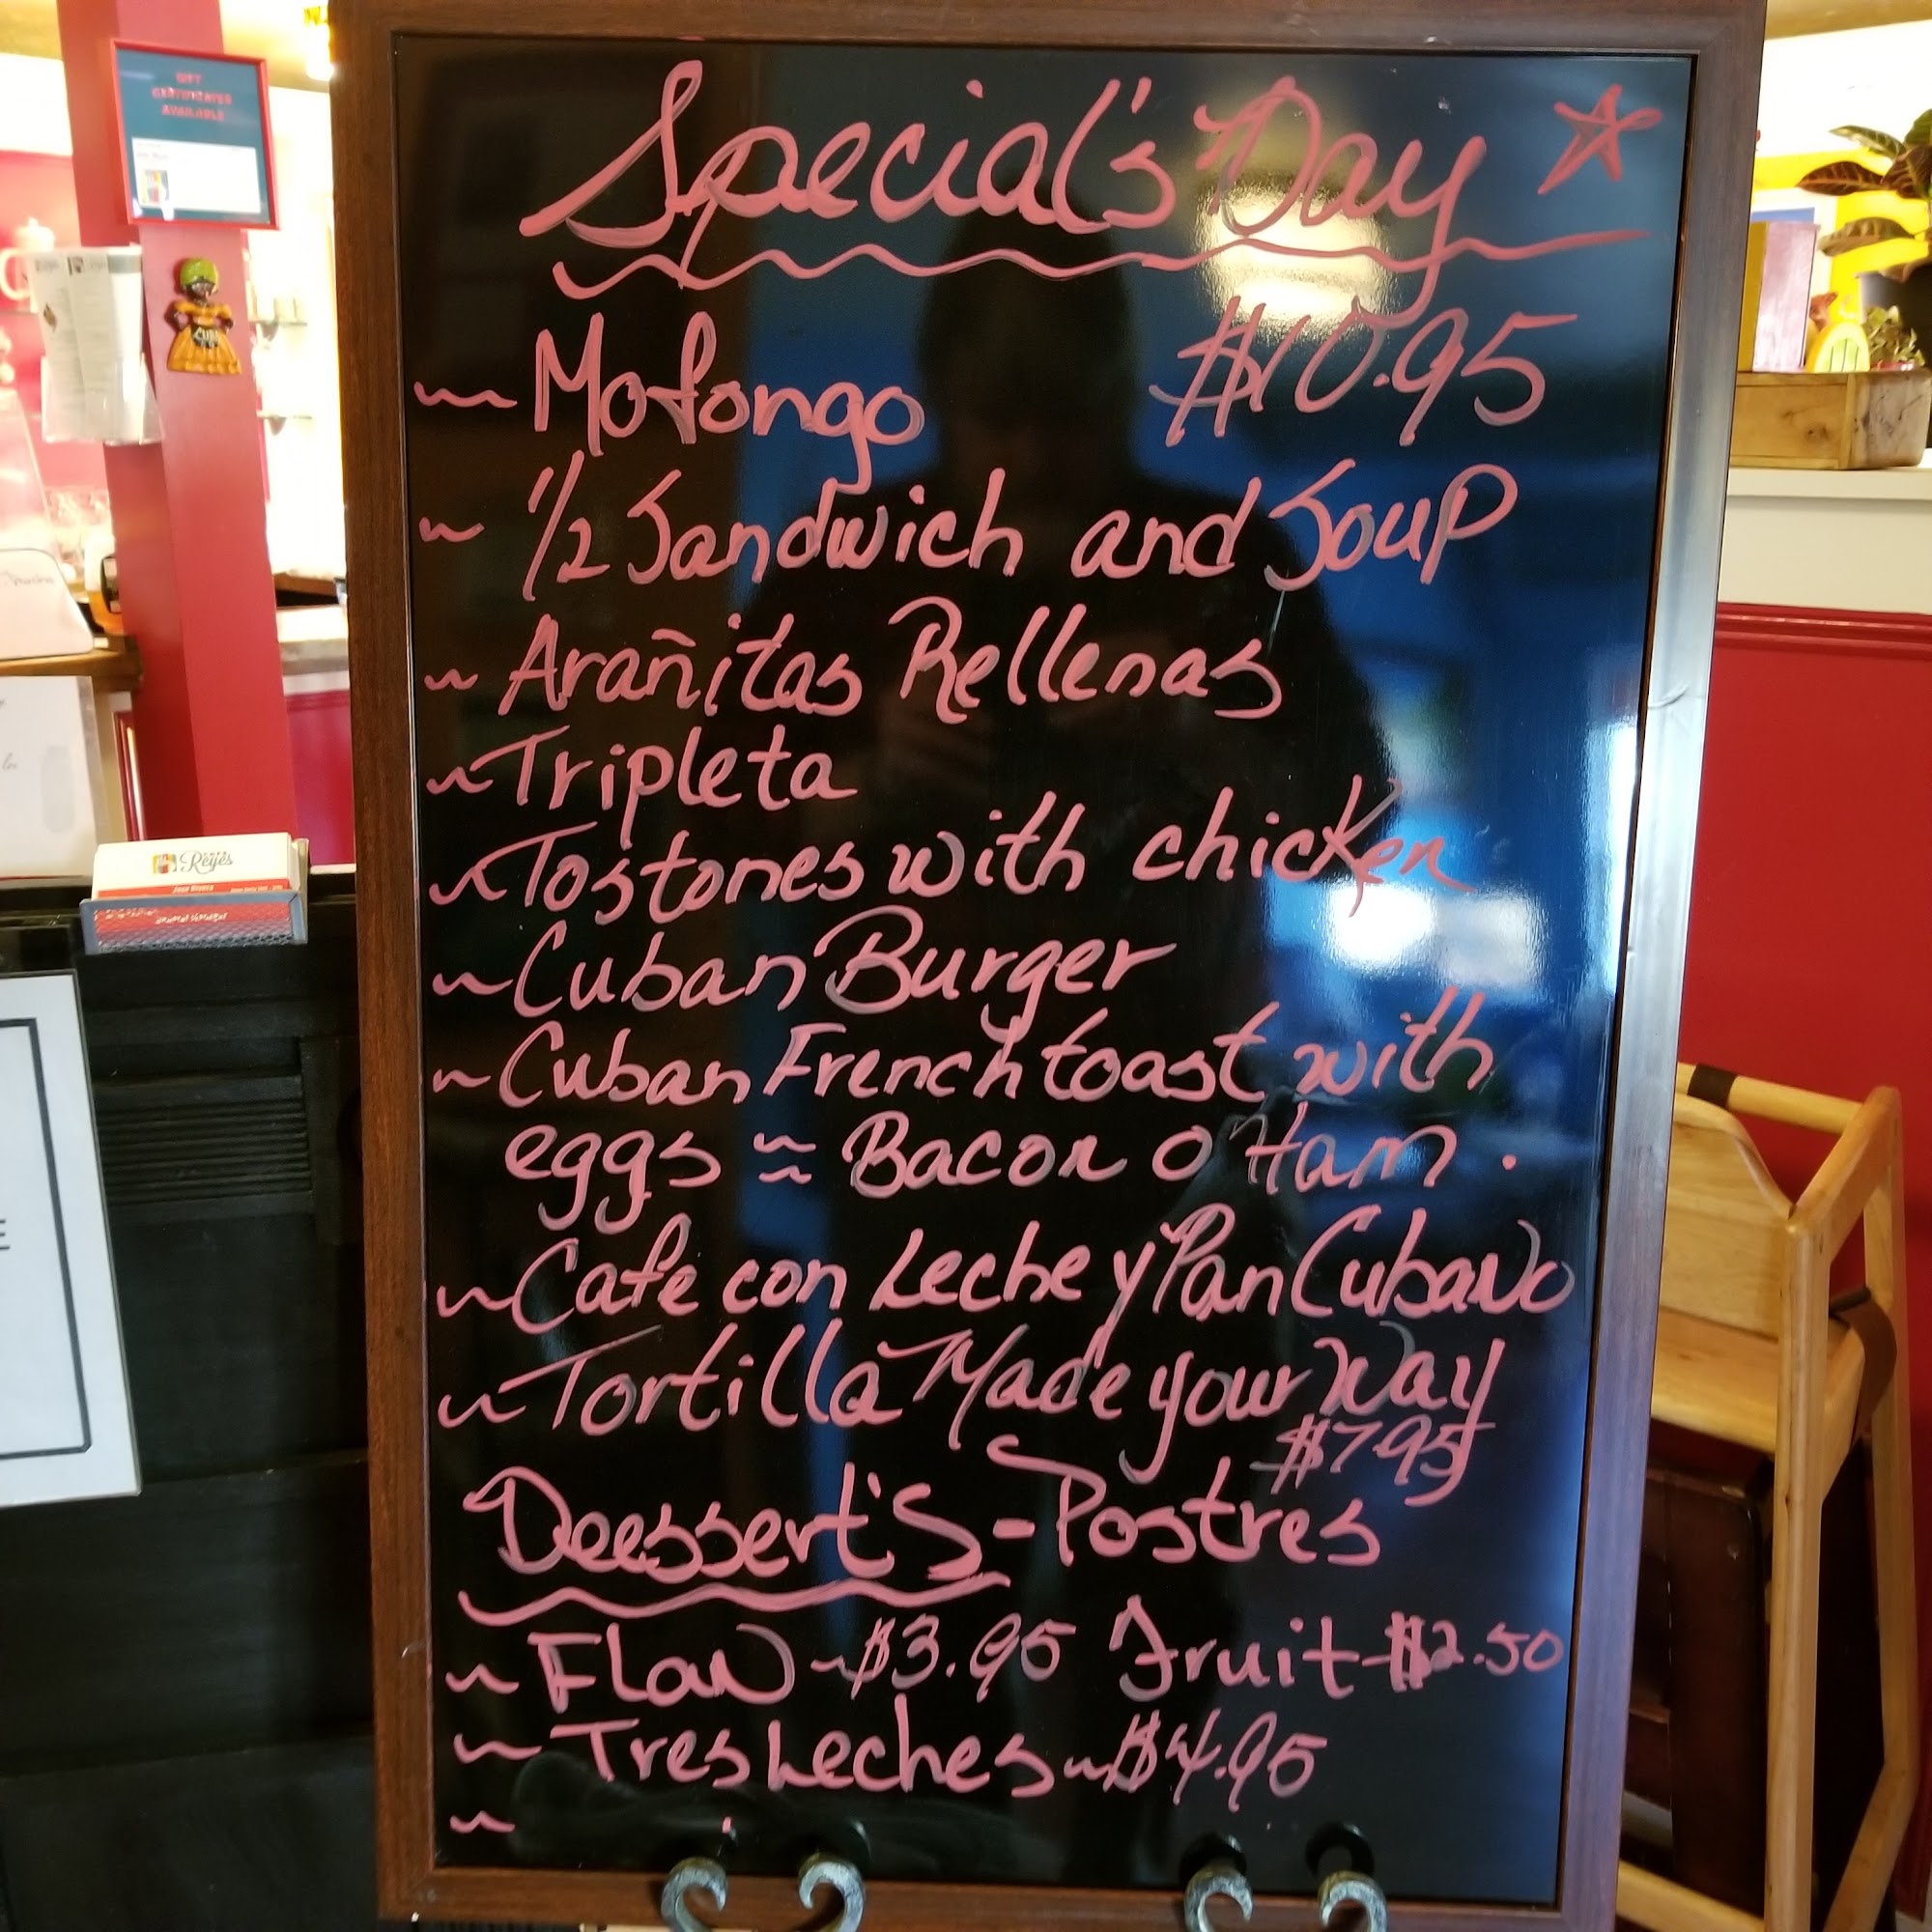 GIFT
CERTIFICATES
AVAILABLE
CUBA
Reyes
Special's Day
~ Mofongo $10.95
~ 1/2 Sandwich and Soup
~ Arañitas Rellenas
~ Tripleta
~ Tostones with chicken
~ Cuban Burger
~ Cuban French toast with
eggs ≈ Bacon o Ham.
~ Cafe con Leche y Pan Cubano
~ Tortilla Made your Way
$7.95
Deessert's - Postres
~ Flan ~ $3.95 Fruit - $2.50
~ Tres Leches ~ $4.95
~